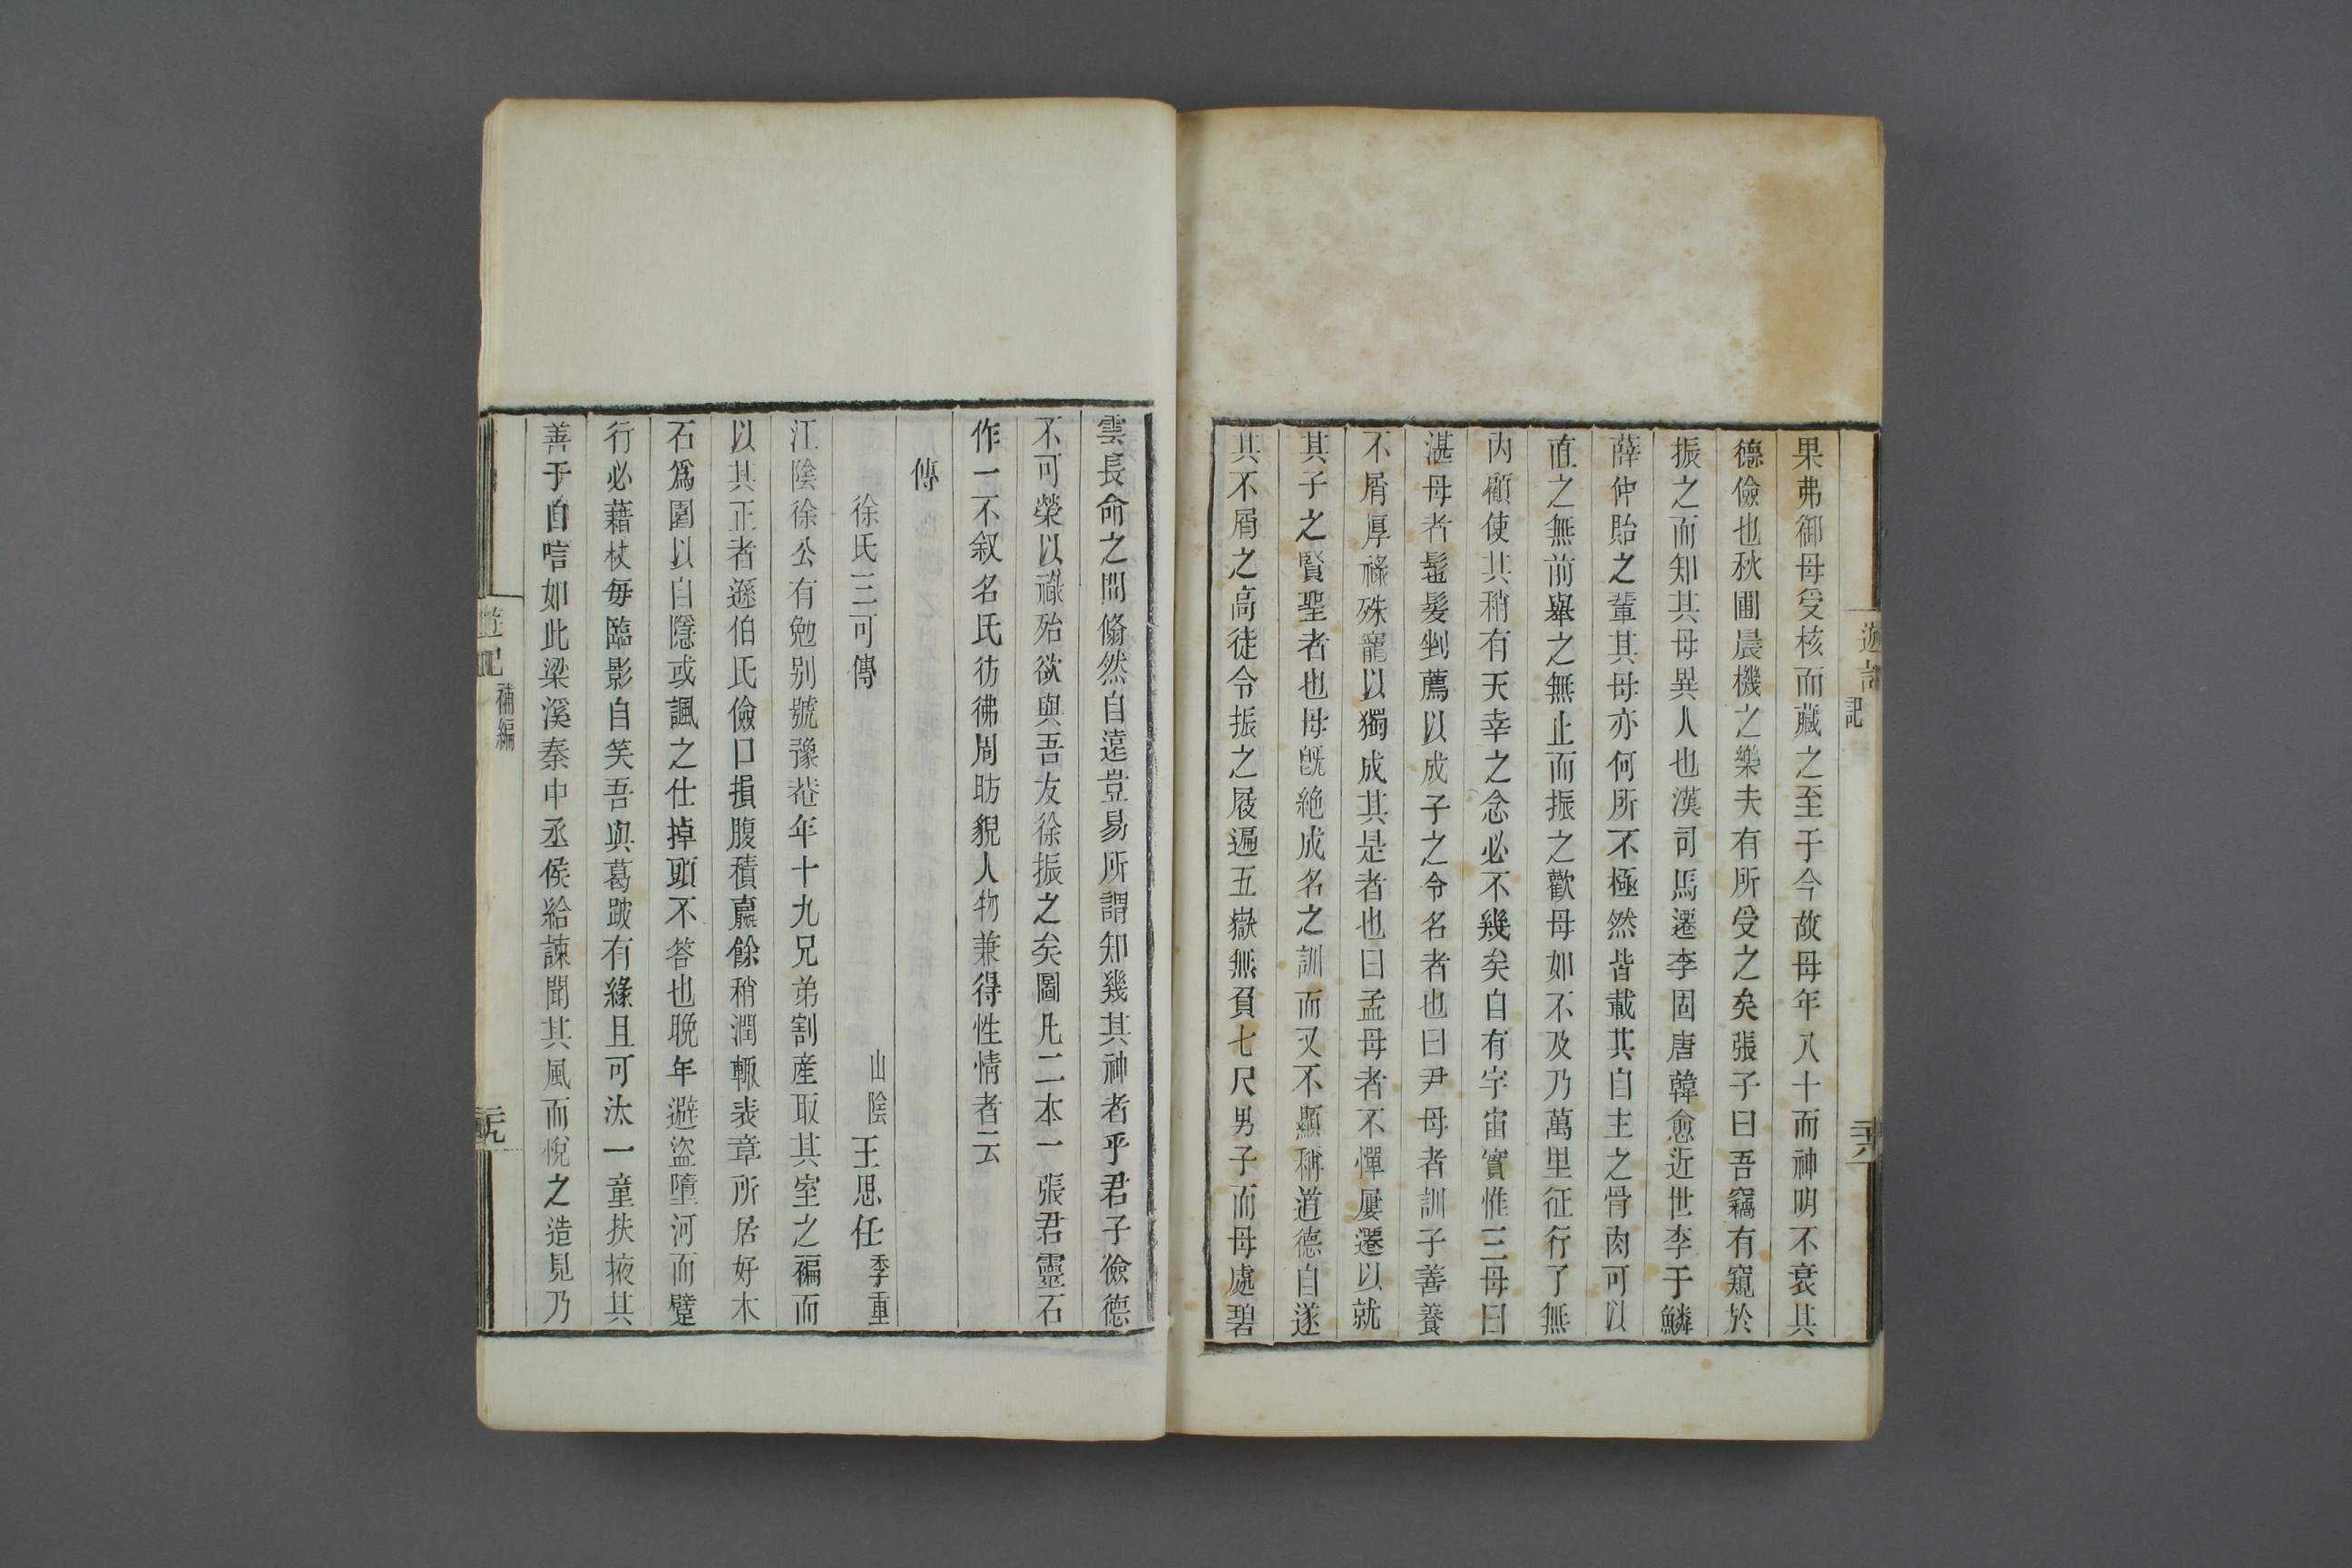 果弗御母受核而藏之至于今故母年八十而神明不衰其
德儉也秋圃晨機之樂夫有所受之矣張子曰吾竊有窺於
振之而知其母異人也漢司馬遷李固唐韓愈近世李于鱗
薛仲貽之輩其母亦何所不極然皆載其自主之骨肉可以
直之無前舉之無止而振之歡母如不及乃萬里征行了無
內顧使其稍有天幸之念必不幾矣自有宇宙實惟三母曰
湛母者髢髮剉薦以成子之令名者也曰尹母者訓子善養
不屑厚祿殊寵以獨成其是者也曰孟母者不憚屢遷以就
其子之賢聖者也母旣絶成名之訓而又不顯稱道德自遂
其不屑之高徒令振之屐遍五嶽無負七尺男子而母處碧
雲長命之間翛然自遠豈易所謂知幾其神者乎君子儉德
不可榮以祿殆欲與吾友徐振之矣圖凡二本一張君靈石
作一不叙名氏彷彿周昉貌人物兼得性情者云
傳
徐氏三可傳 山陰王思任季重
江陰徐公有勉别號豫菴年十九兄弟割產取其室之褊而
以其正者遜伯氏儉口損腹積贏餘稍潤輒表章所居好木
石爲園以自隱或諷之仕掉頭不答也晩年避盜墮河而躄
行必藉杖每臨影自笑吾與葛陂有緣且可汰一童扶掖其
善于自唁如此梁溪秦中丞侯給諫聞其風而悅之造見乃
補編